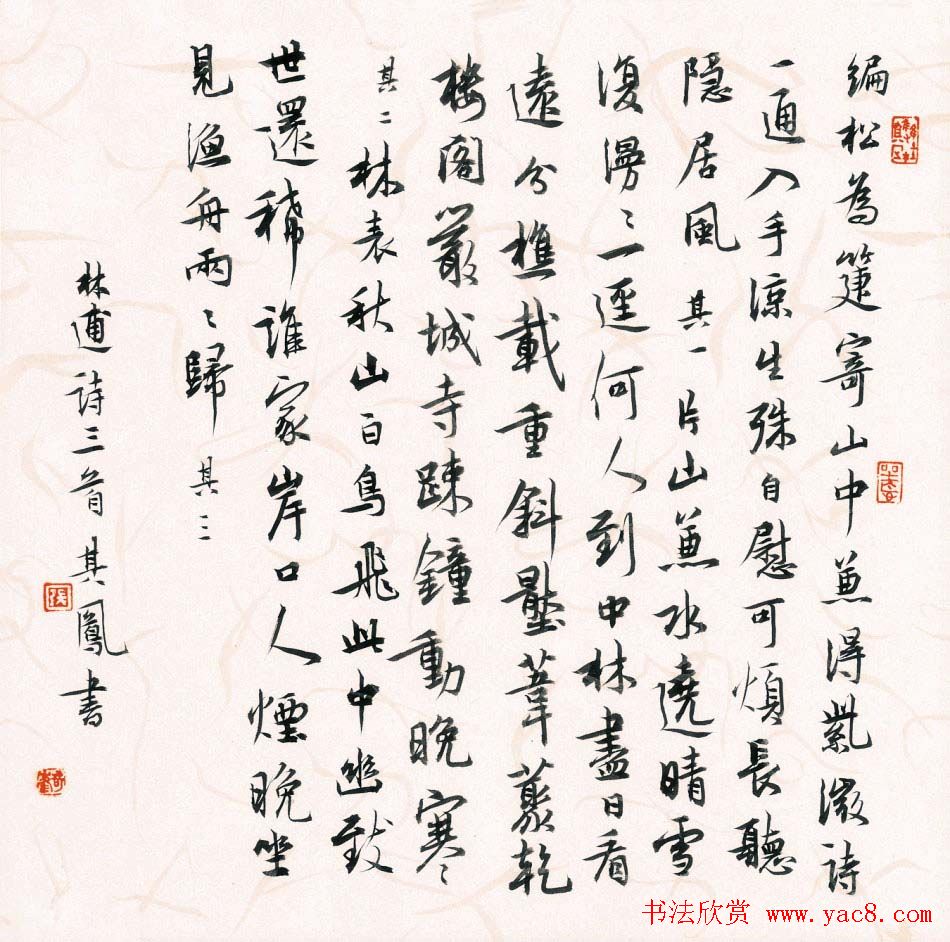 編松為箑寄山中兼得紫微詩
一通入手涼生殊自慰可煩長聽
隱居風 其一 片山兼水遶晴雪
復漫〻一逕何人到中林盡日看
遠分樵載重斜壓葦叢乾
樓閣嚴城寺疎鐘動晚寒
其二 林表秋山白鳥飛此中幽致
世還稀誰家岸口人煙晚坐
見漁舟兩〻歸 其三
林逋詩三首 其鳳書
书法欣赏 www.yac8.com